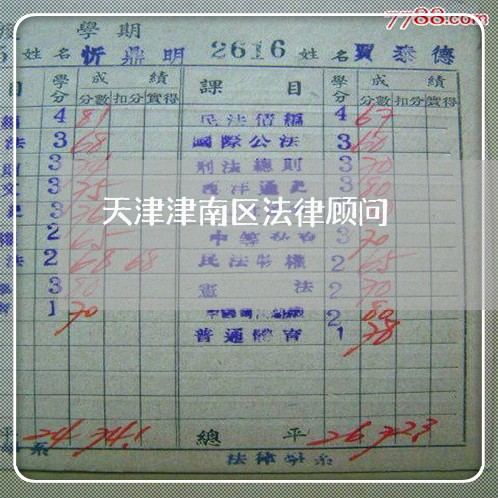 7788.com
學期
姓名 忻鼎明 2616 姓名 賈泰德
目 學分 成績 課目 學分 成績
分數 扣分 實得 分數 扣分 實得
4 81 民法債編 4 67
法 3 68 國際公法 3 60
3 刑法總則 3 70
3 75 西洋通史 3 80
天津津南区法律顾问
2 65 3 70
法 2 68 68 民法物權 2 65
3 80 憲法 2 70
1 70 2 80
普通體育 1 78
平 24 74.1 總平 26 72.3
系 法律學系